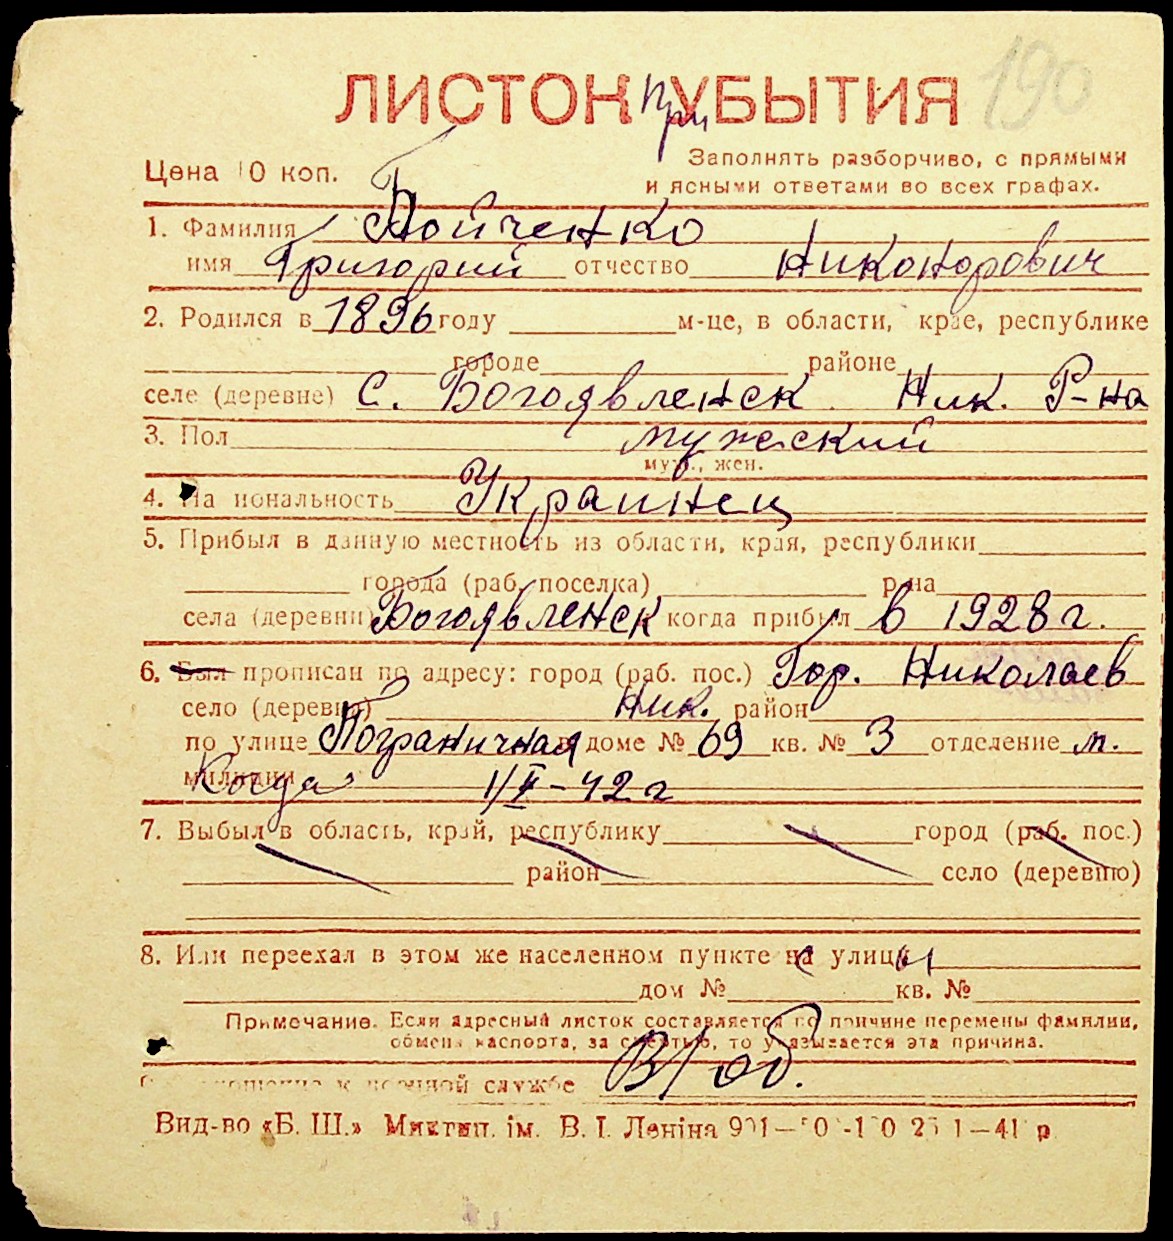 190
ЛИСТОК при УБЫТИЯ
Цена 10 коп.
Заполнять разборчиво, с прямыми
и ясными ответами во всех графах.
1. Фамилия Бойченко
имя Григорий отчество Никонорович
2. Родился в 1896 году м-це, в области, крае, республике
городе районе
селе (деревне) С. Богоявленск Ник. Р-на
3. Пол мужский
муж., жен.
4. Национальность Украинец
5. Прибыл в данную местность из области, края, республики
города (раб. поселка) р-на
села (деревни) Богоявленск когда прибыл в 1928 г.
6. Был прописан по адресу: город (раб. пос.) Гор. Николаев
село (деревня) Ник. район
по улице Пограничная в доме № 69 кв. № 3 отделение м.
милиции Когда 1/II-42 г
7. Выбыл в область, край, республику город (раб. пос.)
район село (деревню)
8. Или переехал в этом же населенном пункте с улицы
дом № кв. №
Примечание. Если адресный листок составляется по причине перемены фамилии,
обмена паспорта, за смертью, то указывается эта причина.
к военной службе В/об.
Вид-во «Б. Ш.» Миктип. ім. В. І. Леніна